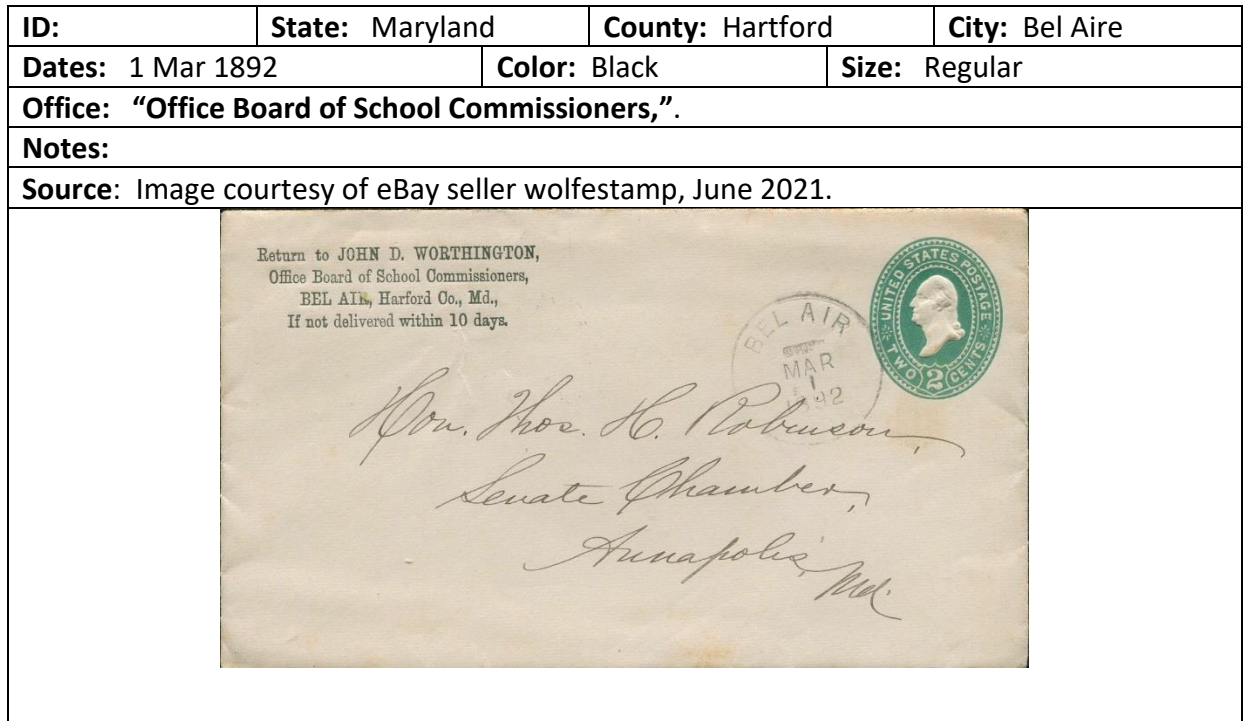 ID: State: Maryland County: Hartford City: Bel Aire
Dates: 1 Mar 1892 Color: Black Size: Regular
Office: “Office Board of School Commissioners,”.
Notes:
Source: Image courtesy of eBay seller wolfestamp, June 2021.
Return to JOHN D. WORTHINGTON,
Office Board of School Commissioners,
BEL AIR, Harford Co., Md.,
If not delivered within 10 days.
BEL AIR
MAR
1
1892
UNITED STATES POSTAGE
TWO 2 CENTS
Hon. Thos. H. Robinson,
Senate Chamber,
Annapolis,
Md.